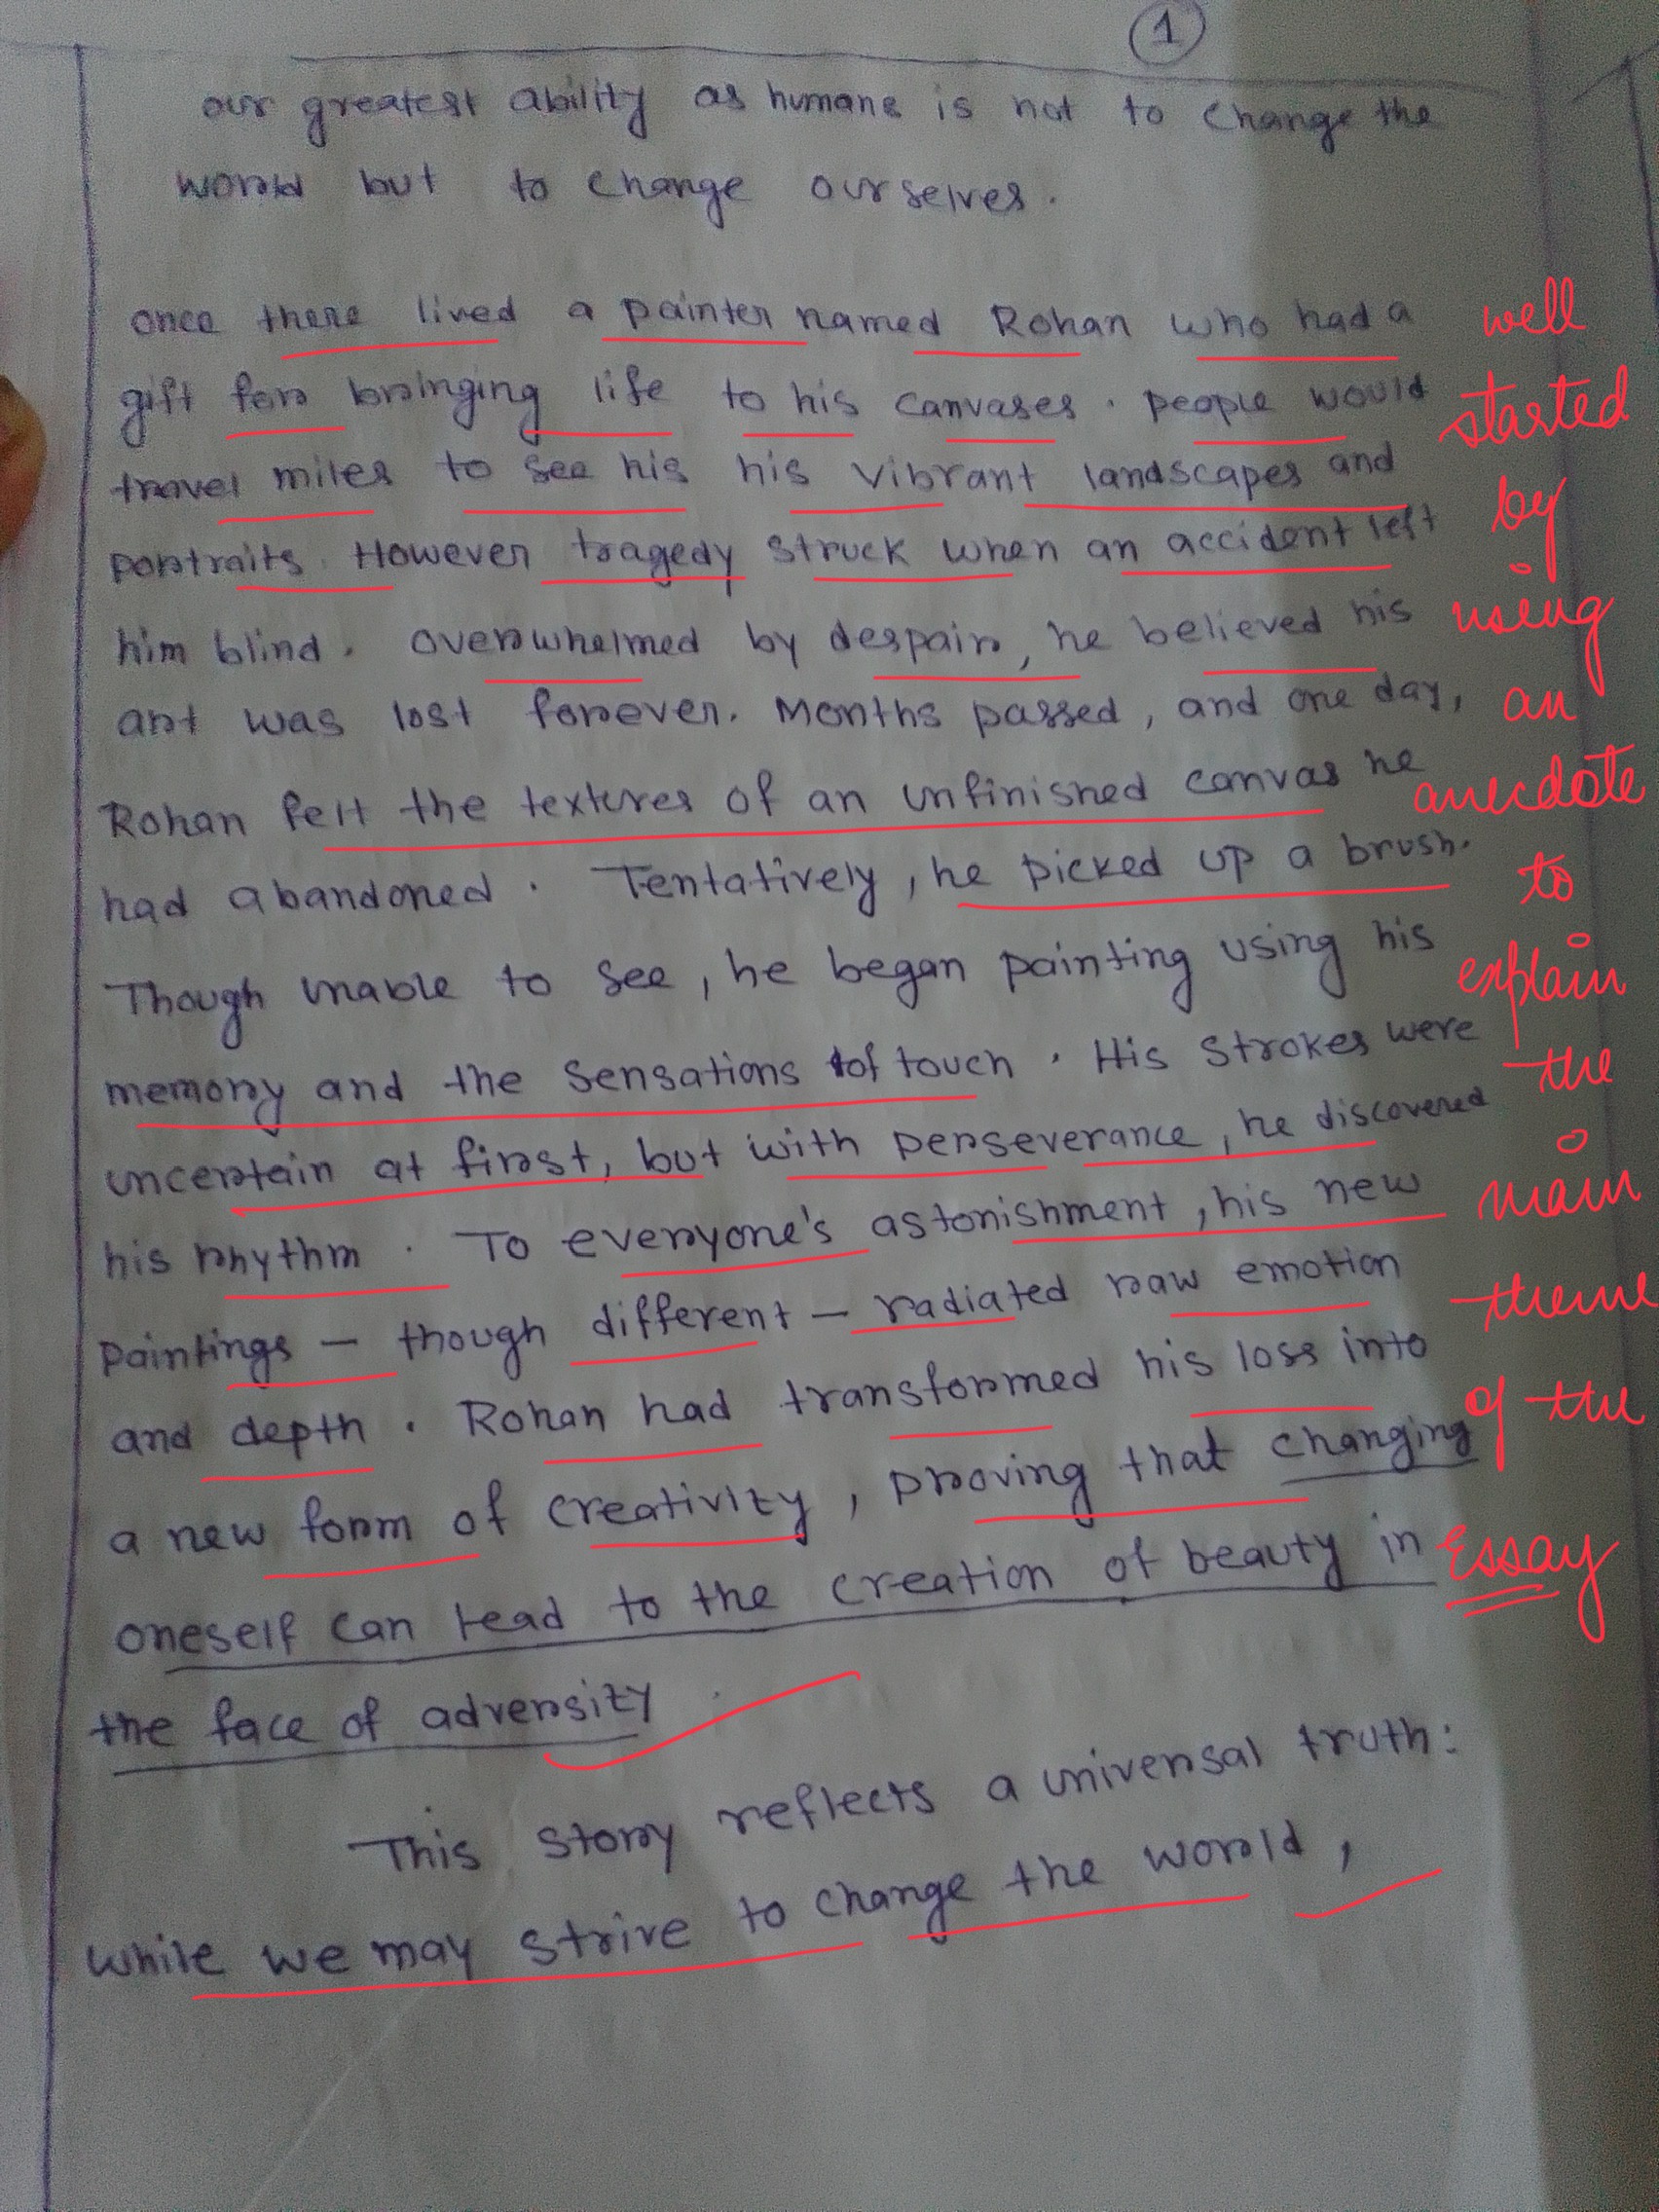 1
our greatest ability as humans is not to change the
world but to change ourselves.
once there lived a painter named Rohan who had a
gift for bringing life to his canvases. people would
travel miles to see his his vibrant landscapes and
portraits. However tragedy struck when an accident left
him blind. overwhelmed by despair, he believed his
art was lost forever. Months passed, and one day,
Rohan felt the textures of an unfinished canvas he
had abandoned. Tentatively, he picked up a brush.
Though unable to see, he began painting using his
memory and the sensations of touch. His strokes were
uncertain at first, but with perseverance, he discovered
his rhythm. To everyone's astonishment, his new
paintings – though different – radiated raw emotion
and depth. Rohan had transformed his loss into
a new form of creativity, proving that changing
oneself can lead to the creation of beauty in
the face of adversity.
This story reflects a universal truth:
while we may strive to change the world,
well
started
by
using
an
anecdote
to
explain
the
main
theme
of the
Essay